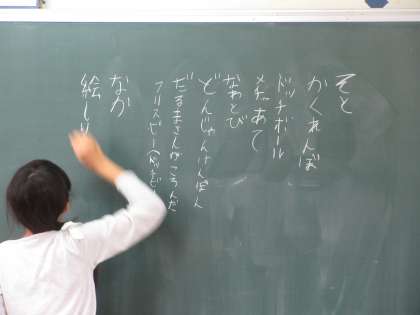 そと
かくれんぼ
ドッチボール
メチャあて
なわとび
どんじゃんけんぽん
だるまさんがころんだ
フリスビー
なか
絵しり